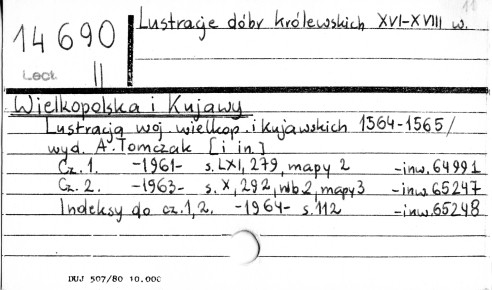 11
Lustracje dóbr królewskich XVI-XVIII w.
14690
Lect. II
Wielkopolska i Kujawy
Lustracja woj. wielkop. i kujawskich 1364-1565/
wyd. A. Tomczak [i in.]
Cz. 1. -1961- s. LXI, 279, mapy 2 -inw. 64991
Cz. 2. -1963- s. X, 292, nlb 2, mapy 3 -inw. 65247
Indeksy do cz. 1, 2. -1964- s. 112 -inw. 65248
DUJ 507/80 10.000